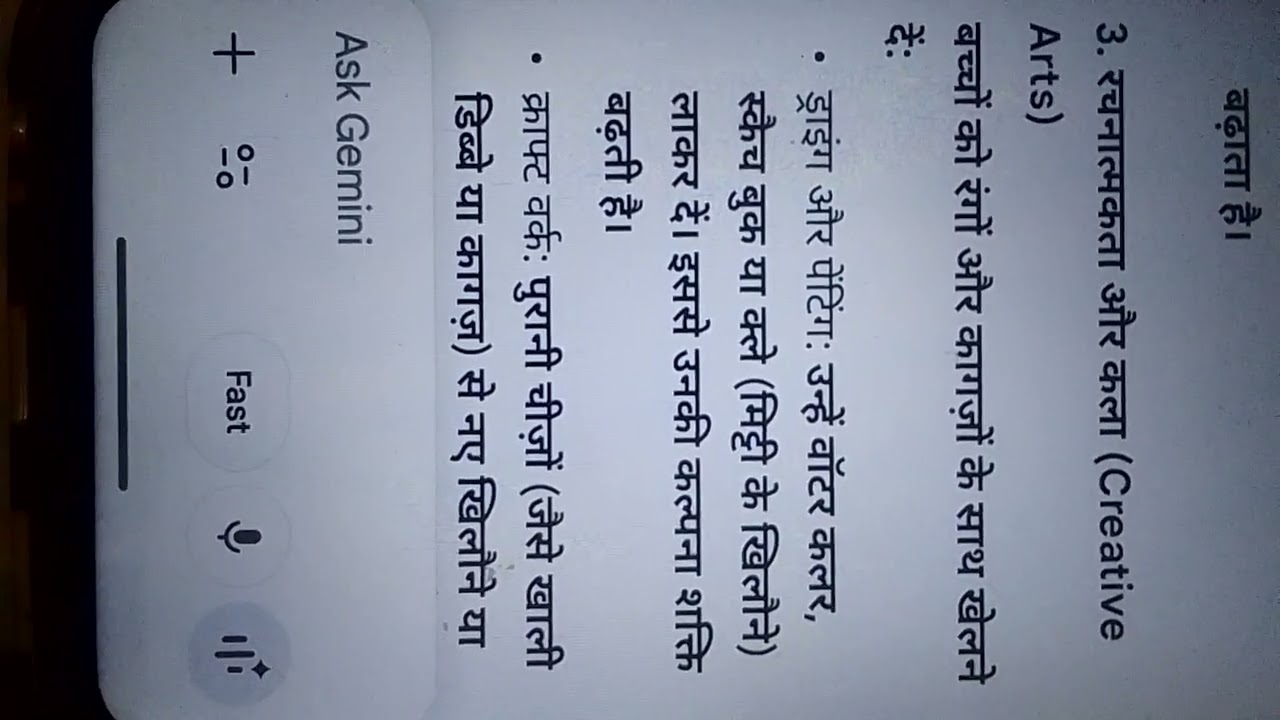 बढ़ाता है।
3. रचनात्मकता और कला (Creative
Arts)
बच्चों को रंगों और कागज़ों के साथ खेलने
दें:
• ड्राइंग और पेंटिंग: उन्हें वॉटर कलर,
स्कैच बुक या क्ले (मिट्टी के खिलौने)
लाकर दें। इससे उनकी कल्पना शक्ति
बढ़ती है।
• क्राफ्ट वर्क: पुरानी चीज़ों (जैसे खाली
डिब्बे या कागज़) से नए खिलौने या
Ask Gemini
Fast